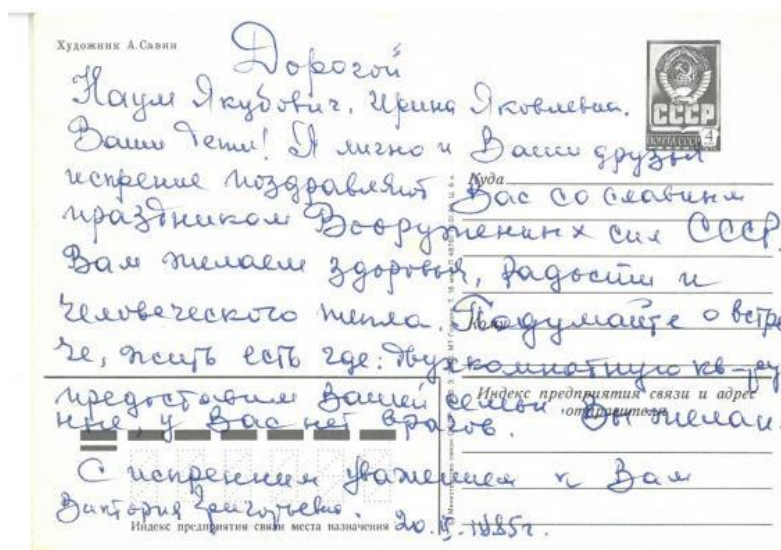 Художник А.Савин
СССР
ПОЧТА СССР
4
Дорогой
Наум Якубович, Ирина Яковлевна.
Ваши дети! Я лично и Ваши друзья
искренне поздравляют Вас со славным
праздником Вооруженных сил СССР.
Вам желаем здоровья, радости и
человеческого тепла. Подумайте о встре
че, жить есть где: двухкомнатную кв-ру
предоставим Вашей семьи Вы желан-
нне, у Вас нет врагов.
С искренним уважением к Вам
Виктория Григорьевна.
20.II.1985г.
Куда
Кому
Индекс предприятия связи и адрес
отправителя
Индекс предприятия связи места назначения